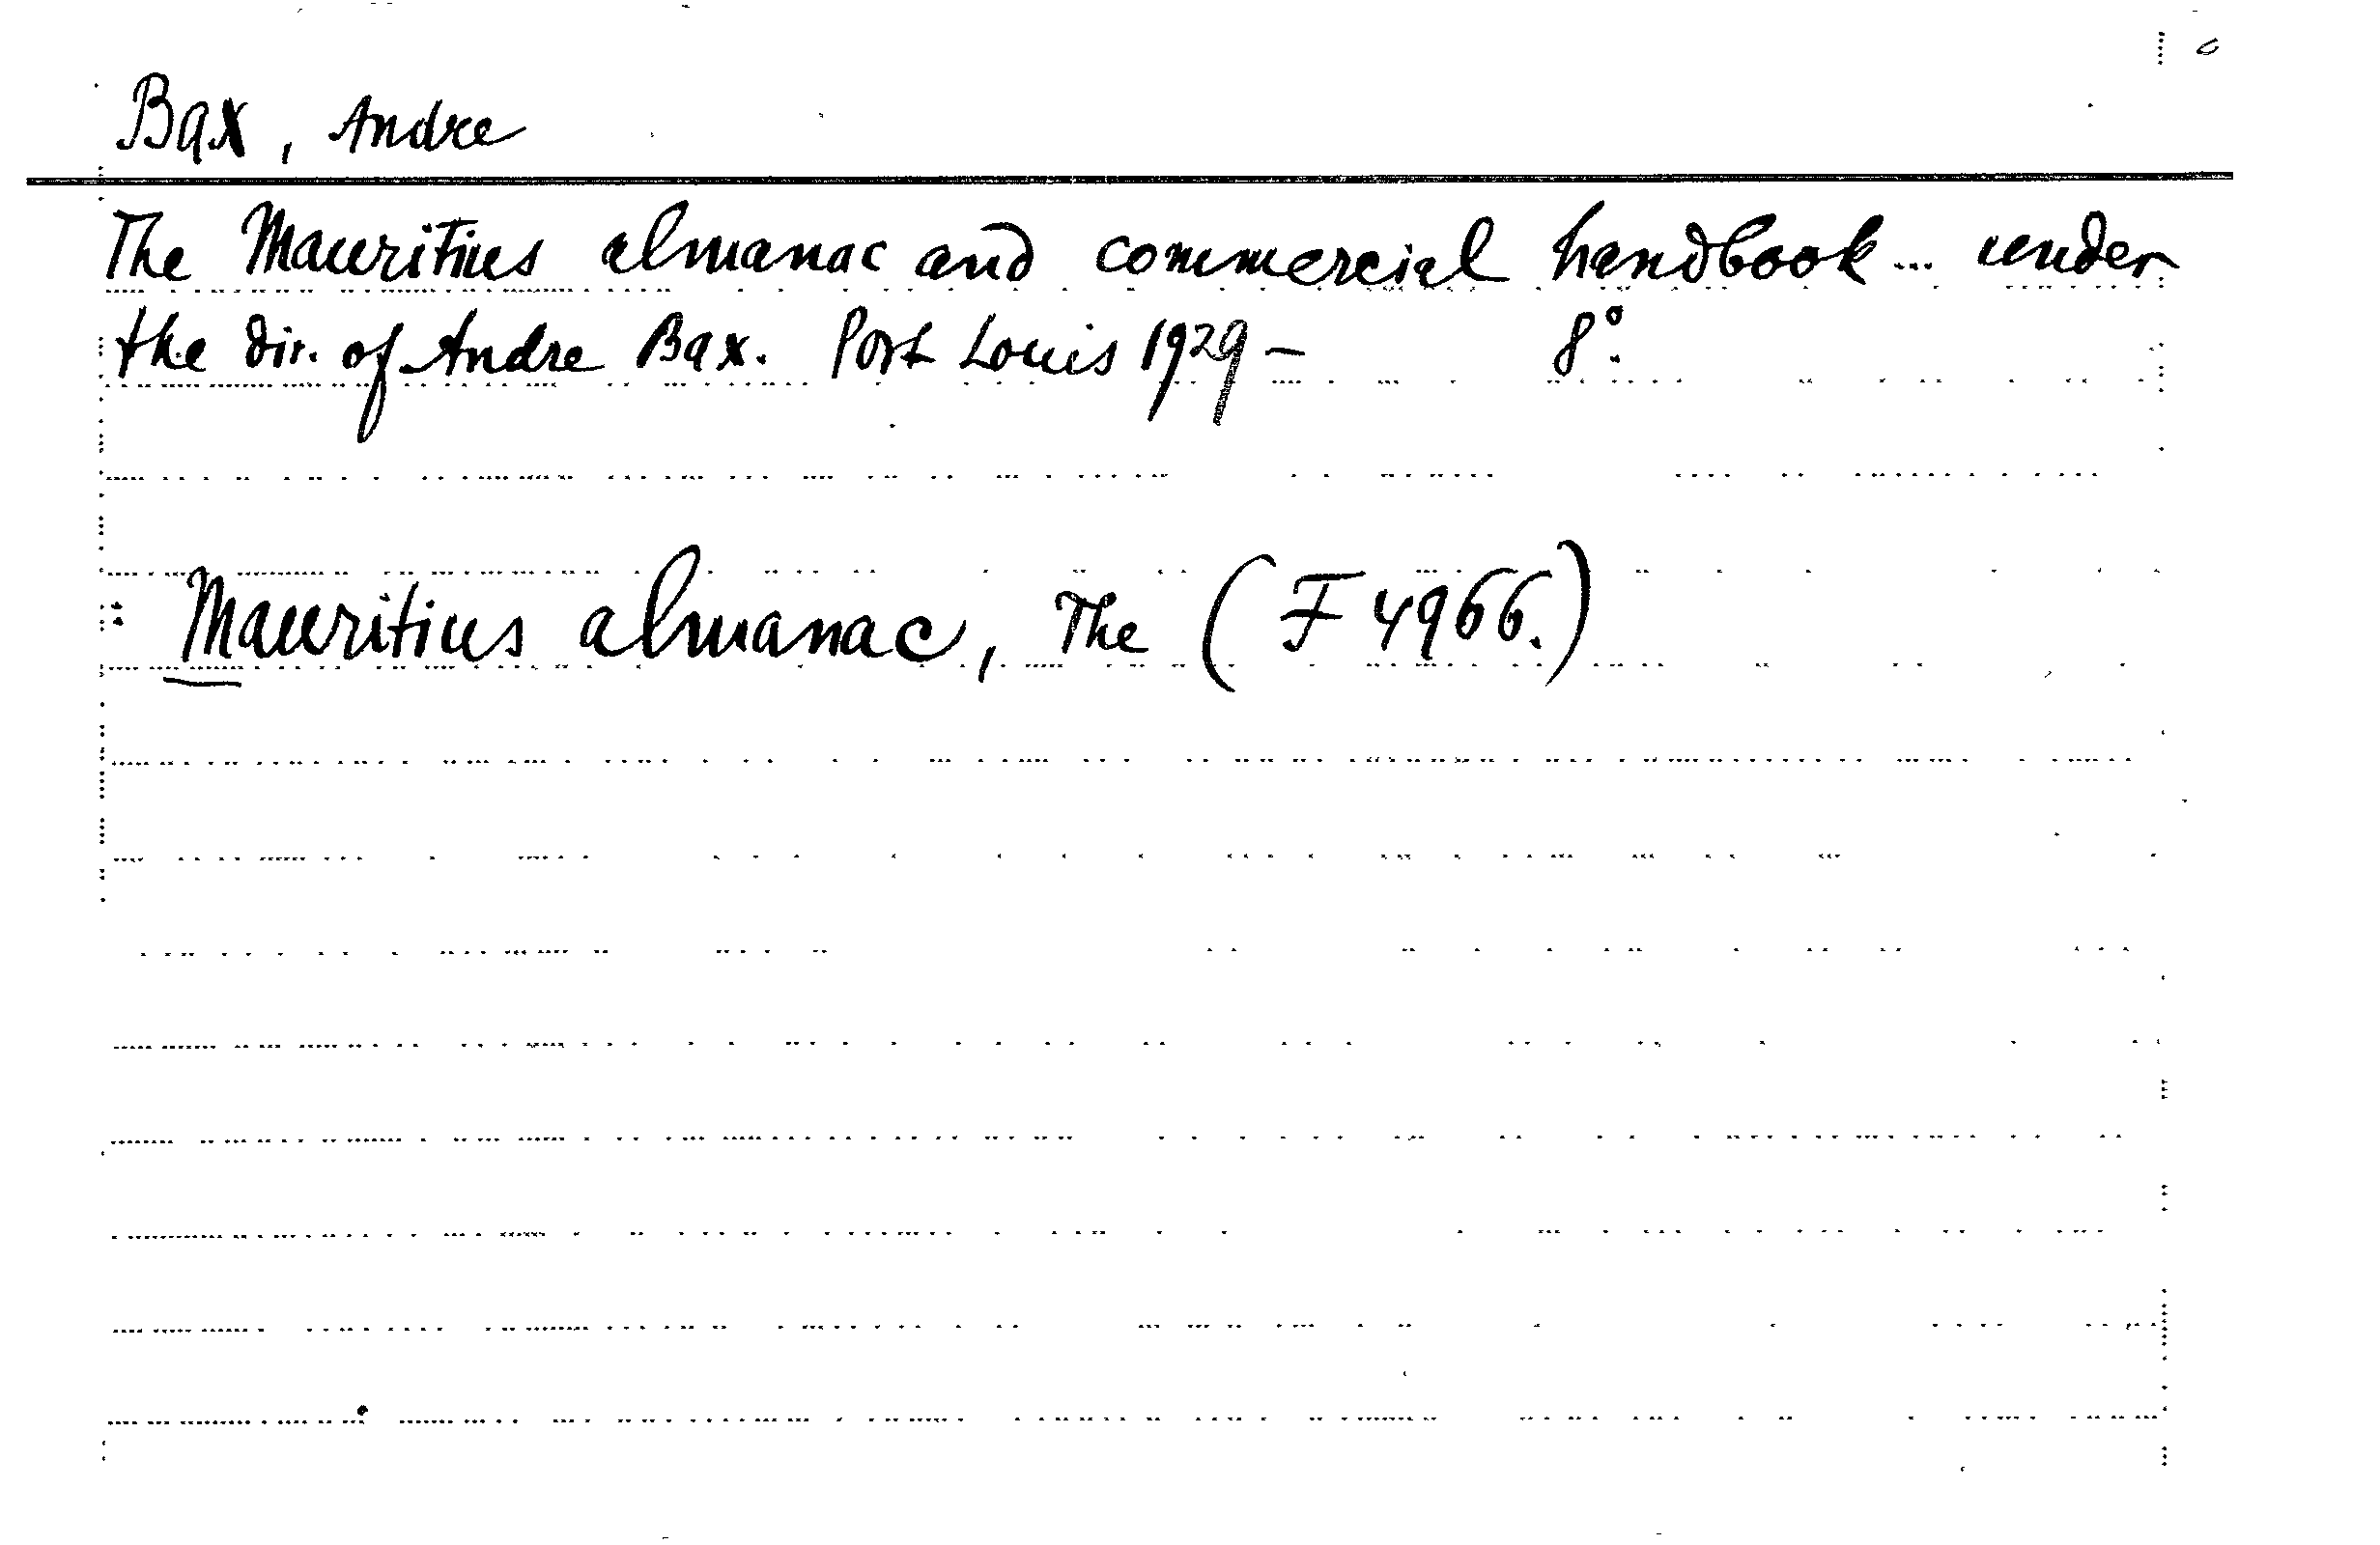 Bax, Andre
The Mauritius almanac and commercial handbook... under
the dir. of Andre Bax. Port Louis 1929 – 8°.
: Mauritius almanac, The (F 4966.)